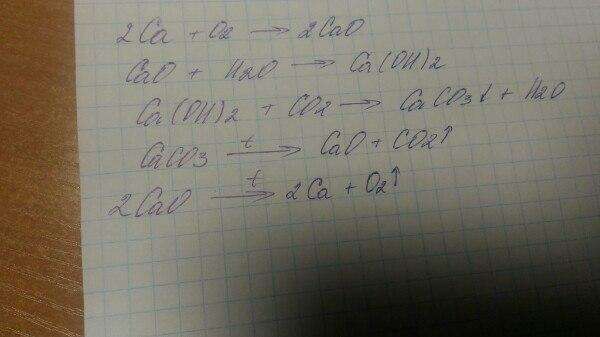 2Ca + O2 → 2CaO
CaO + H2O → Ca(OH)2
Ca(OH)2 + CO2 → CaCO3↓ + H2O
CaCO3 t→ CaO + CO2↑
2CaO t→ 2Ca + O2↑